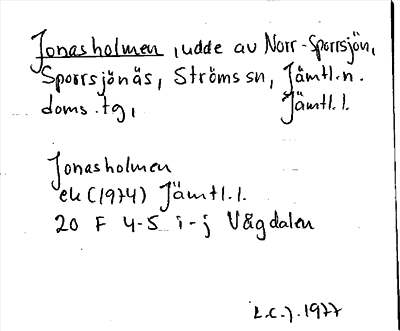 Jonasholmen, udde av Norr-Sporrsjön,
Sporrsjönäs, Ströms sn, Jämtl. n.
doms. tg, Jämtl. l.
Jonasholmen
ek (1974) Jämtl. l.
20 F 4-5 i-j Vågdalen
L.C.J. 1977